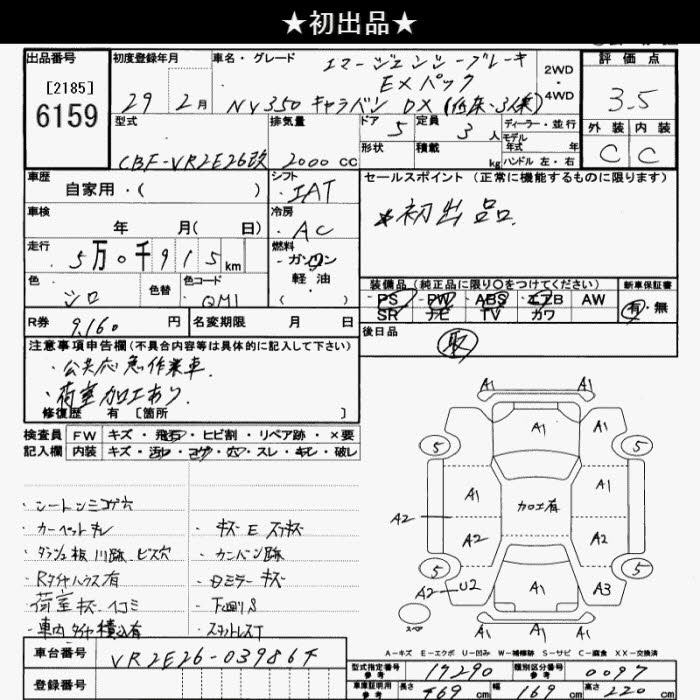 ★初出品★
出品番号 初度登録年月 車名・グレード エマージェンシーブレーキ 評価点
[2185] EXパック 2WD・4WD
6159 29年 2月 NV350 キャラバン DX (低床・3人乗) 3.5
型式 排気量 ドア 5 定員 3人 ディーラー・並行 外装 内装
CBF-VR2E26改 2000cc 形状 積載 kg モデル年式 年式 ハンドル 左・右 C C
車歴 自家用・( ) シフト IAT セールスポイント(正常に機能するものに限ります)
車検 年 月( 日) 冷房 AC *初出品
走行 5万0千915km 燃料 ガソリン 軽油 ( )
色 シロ 色替 色コード QM1 装備品(純正品に限り〇をつけてください) 新車保証書
PS PW ABS エアB AW 有・無
SR ナビ TV カワ
R券 9,160円 名変期限 月 日 後日品 取
注意事項申告欄(不具合内容等は具体的に記入して下さい)
・公共応急作業車
・荷室加工あり
修復歴 有 [箇所 ]
検査員 FW キズ・飛石・ヒビ割・リペア跡・×要
記入欄 内装 キズ・汚レ・コゲ・穴・スレ・キレ・破レ
・シートシミコゲ穴
・カーペットキレ ・キズEスリキズ
・ダッシュ板 川跡 ビス穴 ・カンバン跡
・Rタイヤハウス有 ・Dミラーキズ
・荷室キズ ヘコミ ・下回りS
・車内タイヤ積込有 ・スタットレスT
A1 A1
A1
5 A1 5
A1 加工有 A1
A2 A2 A2
5 5
A2 U2 A1 A3
スペア A1 A1
A=キズ E=エクボ U=凹み W=補修跡 S=サビ C=腐食 XX=交換済
車台番号 VR2E26-039864
登録番号
型式指定番号 参考 17290 類別区分番号 参考 0097
車庫証明用 参考 長さ 469cm 幅 169cm 高さ 220cm